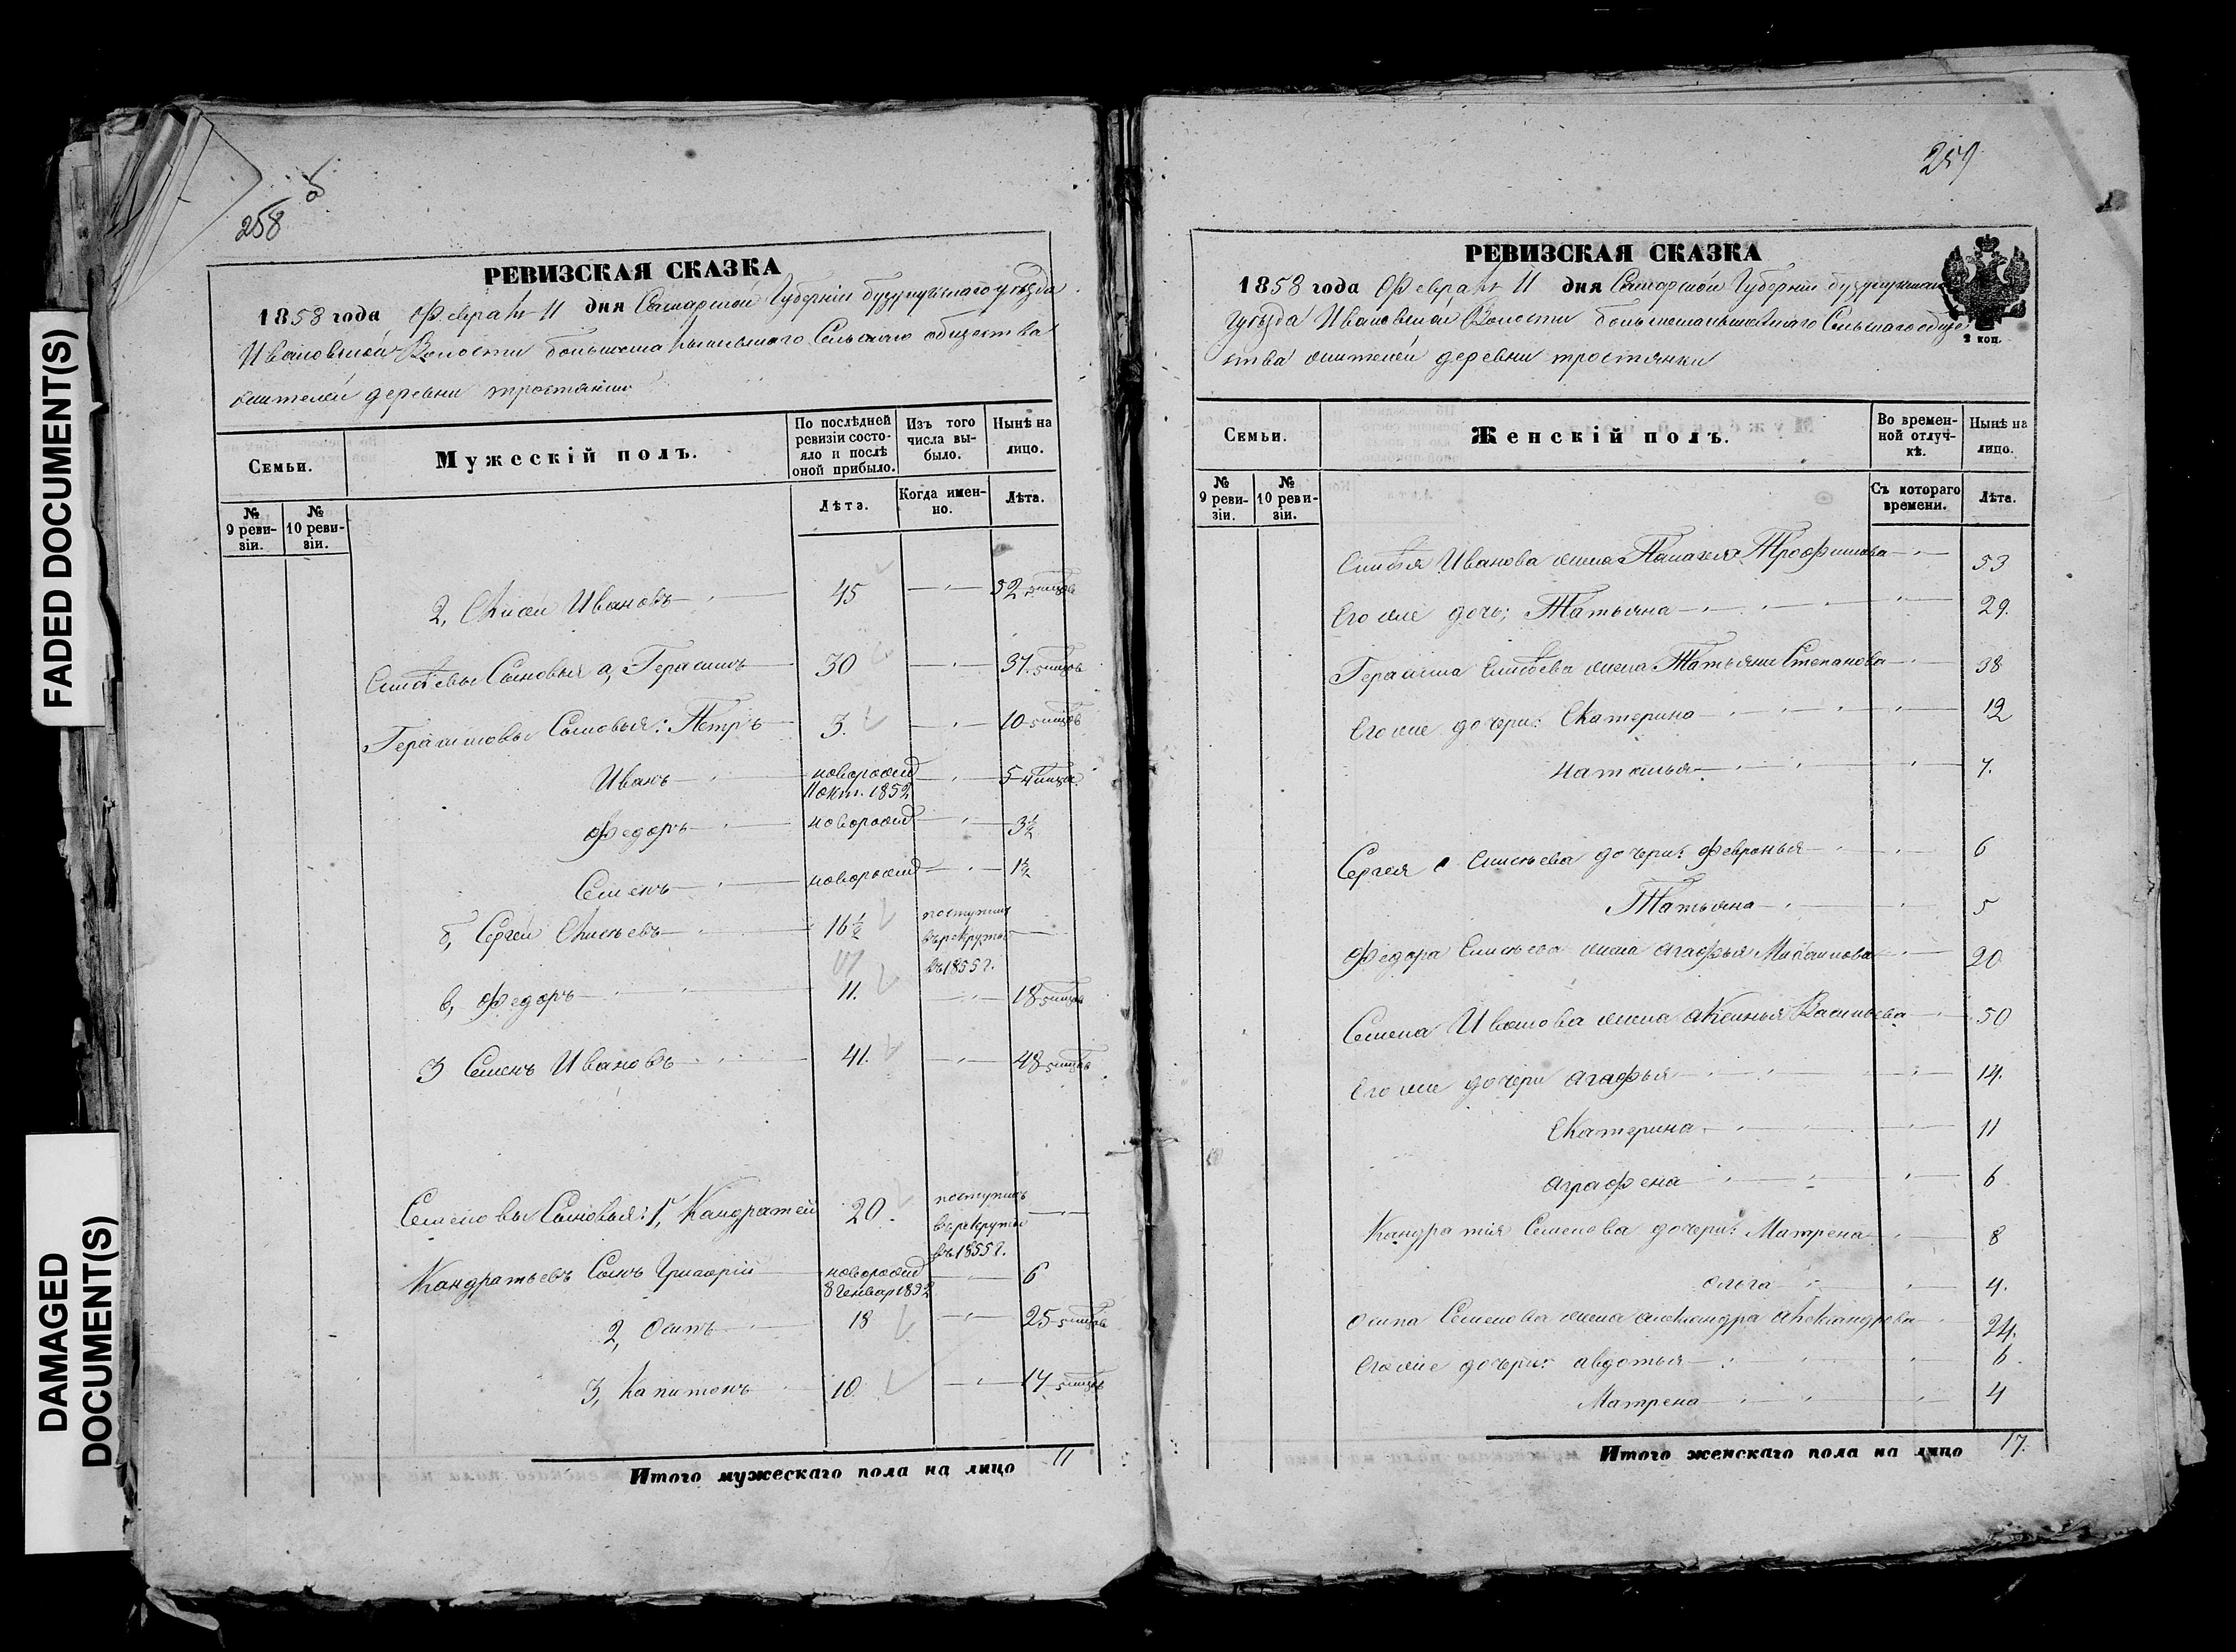 FADED DOCUMENT(S)
DAMAGED
DOCUMENT(S)
258
РЕВИЗСКАЯ СКАЗКА
1858 года Февраля 11 дня Самарской Губернии бузулукскаго уезда
Ивановской Волости Сельскаго общества
жителей деревни тростянки
Семьи.
Мужескій полъ.
По послѣдней ревизіи состояло и послѣ оной прибыло.
Изъ того числа выбыло.
Нынѣ на лицо.
№ 9 ревизіи.
№ 10 ревизіи.
Лѣта.
Когда именно.
Лѣта.
2, Ивановъ 45 52
Сыновья а, Герасимъ 30 37
Герасимовы Сыновья: Петръ 3. 10
Иванъ новорожд 11 окт. 1852 5
Федоръ новорожд 3½
Семенъ новорожд 1½
б, Сергей Елисѣевъ 16½ поступилъ въ рекруты въ 1855 г.
в, Федоръ 11. 18
3 Семенъ Ивановъ 41. 48
Семеновы Сыновья: 1, Кандратей 20 поступилъ в рекруты въ 1855 г.
Кандратьевъ Сынъ Григорій новорожд 6
2, Осипъ 18 25
3, Капитонъ 10. 17
Итого мужескаго пола на лицо 11
259
РЕВИЗСКАЯ СКАЗКА
2 коп.
1858 года Февраля 11 дня Самарской Губернии
уезда Ивановской Волости Сельскаго обще
ства жителей деревни тростянки
Семьи.
Женскій полъ.
Во временной отлучкѣ.
Нынѣ на лицо.
№ 9 ревизіи.
№ 10 ревизіи.
Съ котораго времени.
Лѣта.
Иванова жена Трофимова 53
Его же дочь; Татьяна 29.
Герасима жена Татьяна Степанова 38
Его же дочери: Екатерина 12
Наталья 7.
Сергея Елисѣева дочери: Февронья 6
Татьяна 5
Федора Елисѣева жена Агафья 20
Семена Иванова жена Аксинья Васильева 50
Его же дочери Агафья 14.
Екатерина 11
Аграфена 6
Кандратия Семенова дочери: Матрена 8
Ольга 4.
Осипа Семенова жена Александра Александрова 24.
Его же дочери: Авдотья 6.
Матрена 4
Итого женскаго пола на лицо 17.